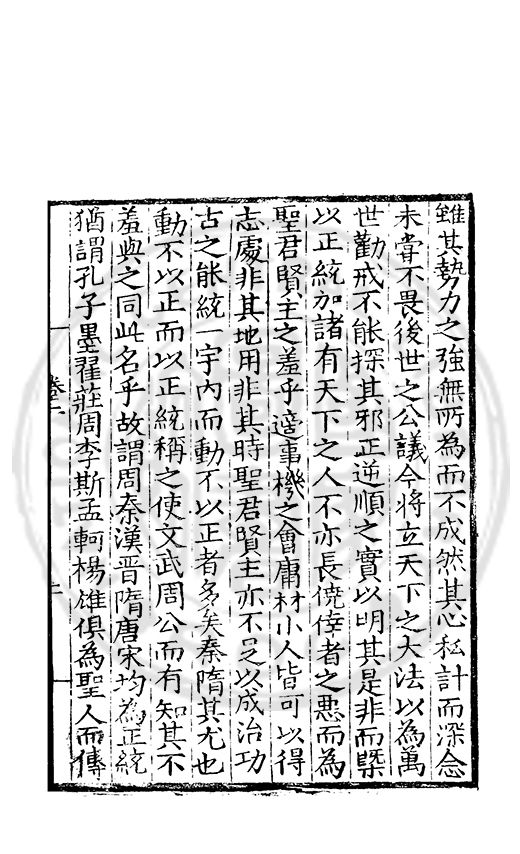 雖其勢力之強無所為而不成然其心私計而深念
未嘗不畏後世之公議今將立天下之大法以為萬
世勸戒不能探其邪正逆順之實以明其是非而槩
以正統加諸有天下之人不亦長僥倖者之惡而為
聖君賢主之羞乎適事機之會庸材小人皆可以得
志處非其地用非其時聖君賢主亦不足以成治功
古之能統一宇內而動不以正者多矣秦隋其尤也
動不以正而以正統稱之使文武周公而有知其不
羞與之同此名乎故謂周秦漢晉隋唐宋均為正統
猶謂孔子墨翟莊周李斯孟軻楊雄俱為聖人而傳
卷二